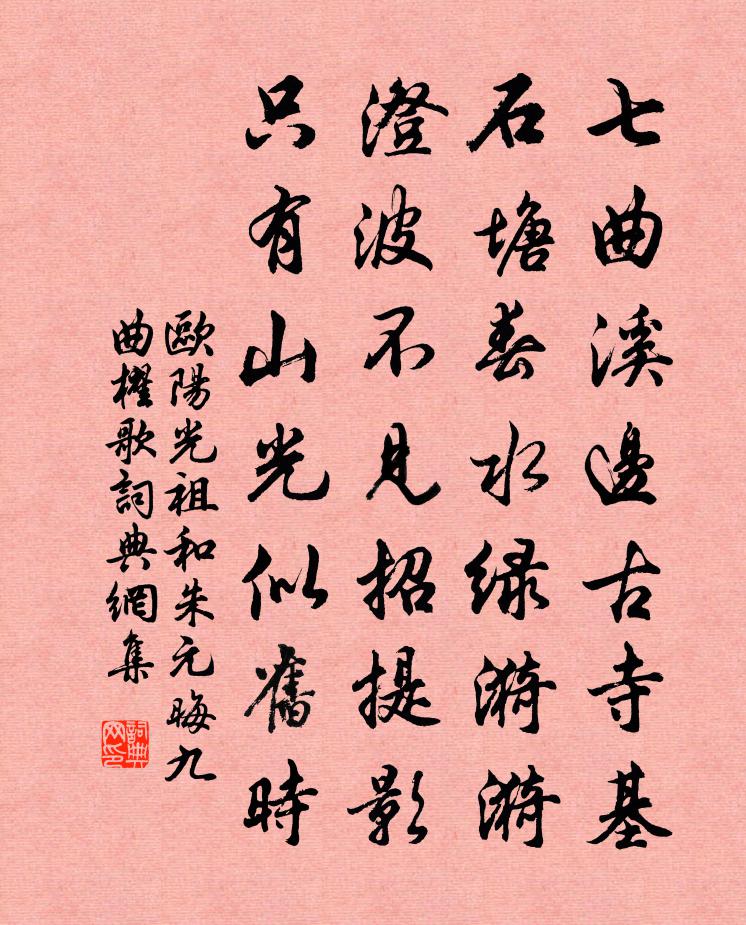 七曲溪邊古寺基
石塘春水緑漪漪
澄波不見招提影
只有山光似舊時
歐陽光祖和朱元晦九
曲櫂歌詞典網集
詞典
网印